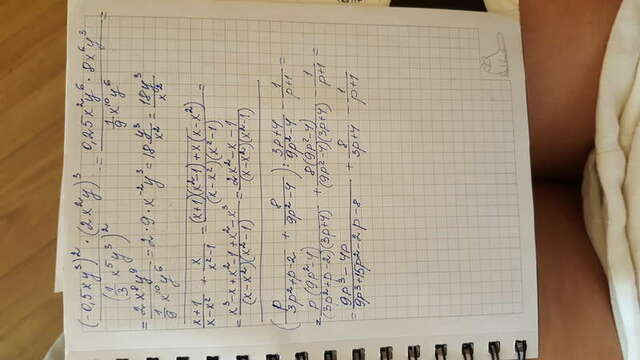 (-0,5xy³)² · (2x²y)³ / (1/3 x⁵y³)² = 0,25x²y⁶ · 8x⁶y³ / 1/9 x¹⁰y⁶ =
= 2x⁸y⁹ / 1/9 x¹⁰y⁶ = 2 · 9 · x⁻²y³ = 18 y³/x² = 18y³/x²
x+1 / x-x² + x / x²-1 = (x+1)(x²-1)+x(x-x²) / (x-x²)(x²-1) =
= x³-x+x²-1+x²-x³ / (x-x²)(x²-1) = 2x²-x-1 / (x-x²)(x²-1)
(p / 3p²+p-2 + 8 / 9p²-4) : 3p+4 / 9p²-4 - 1 / p+1 =
= p(9p²-4) / (3p²+p-2)(3p+4) + 8(9p²-4) / (9p²-4)(3p+4) - 1 / p+1 =
= 9p³-4p / 9p³+15p²-2p-8 + 8 / 3p+4 - 1 / p+1